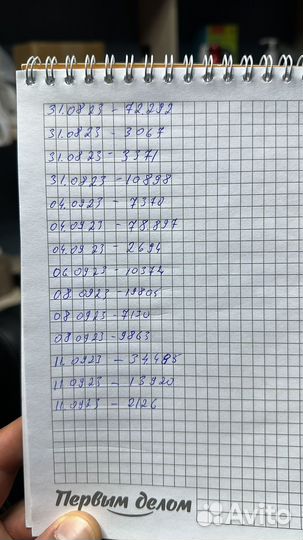 31.08.23 - 72.292
31.08.23 - 3067
31.08.23 - 3371
31.08.23 - 10898
04.09.23 - 7370
04.09.23 - 78.897
04.09.23 - 2694
06.09.23 - 10374
08.09.23 - 19805
08.09.23 - 7120
08.09.23 - 9863
11.09.23 - 34485
11.09.23 - 13920
11.09.23 - 2126
Первым делом
Avito